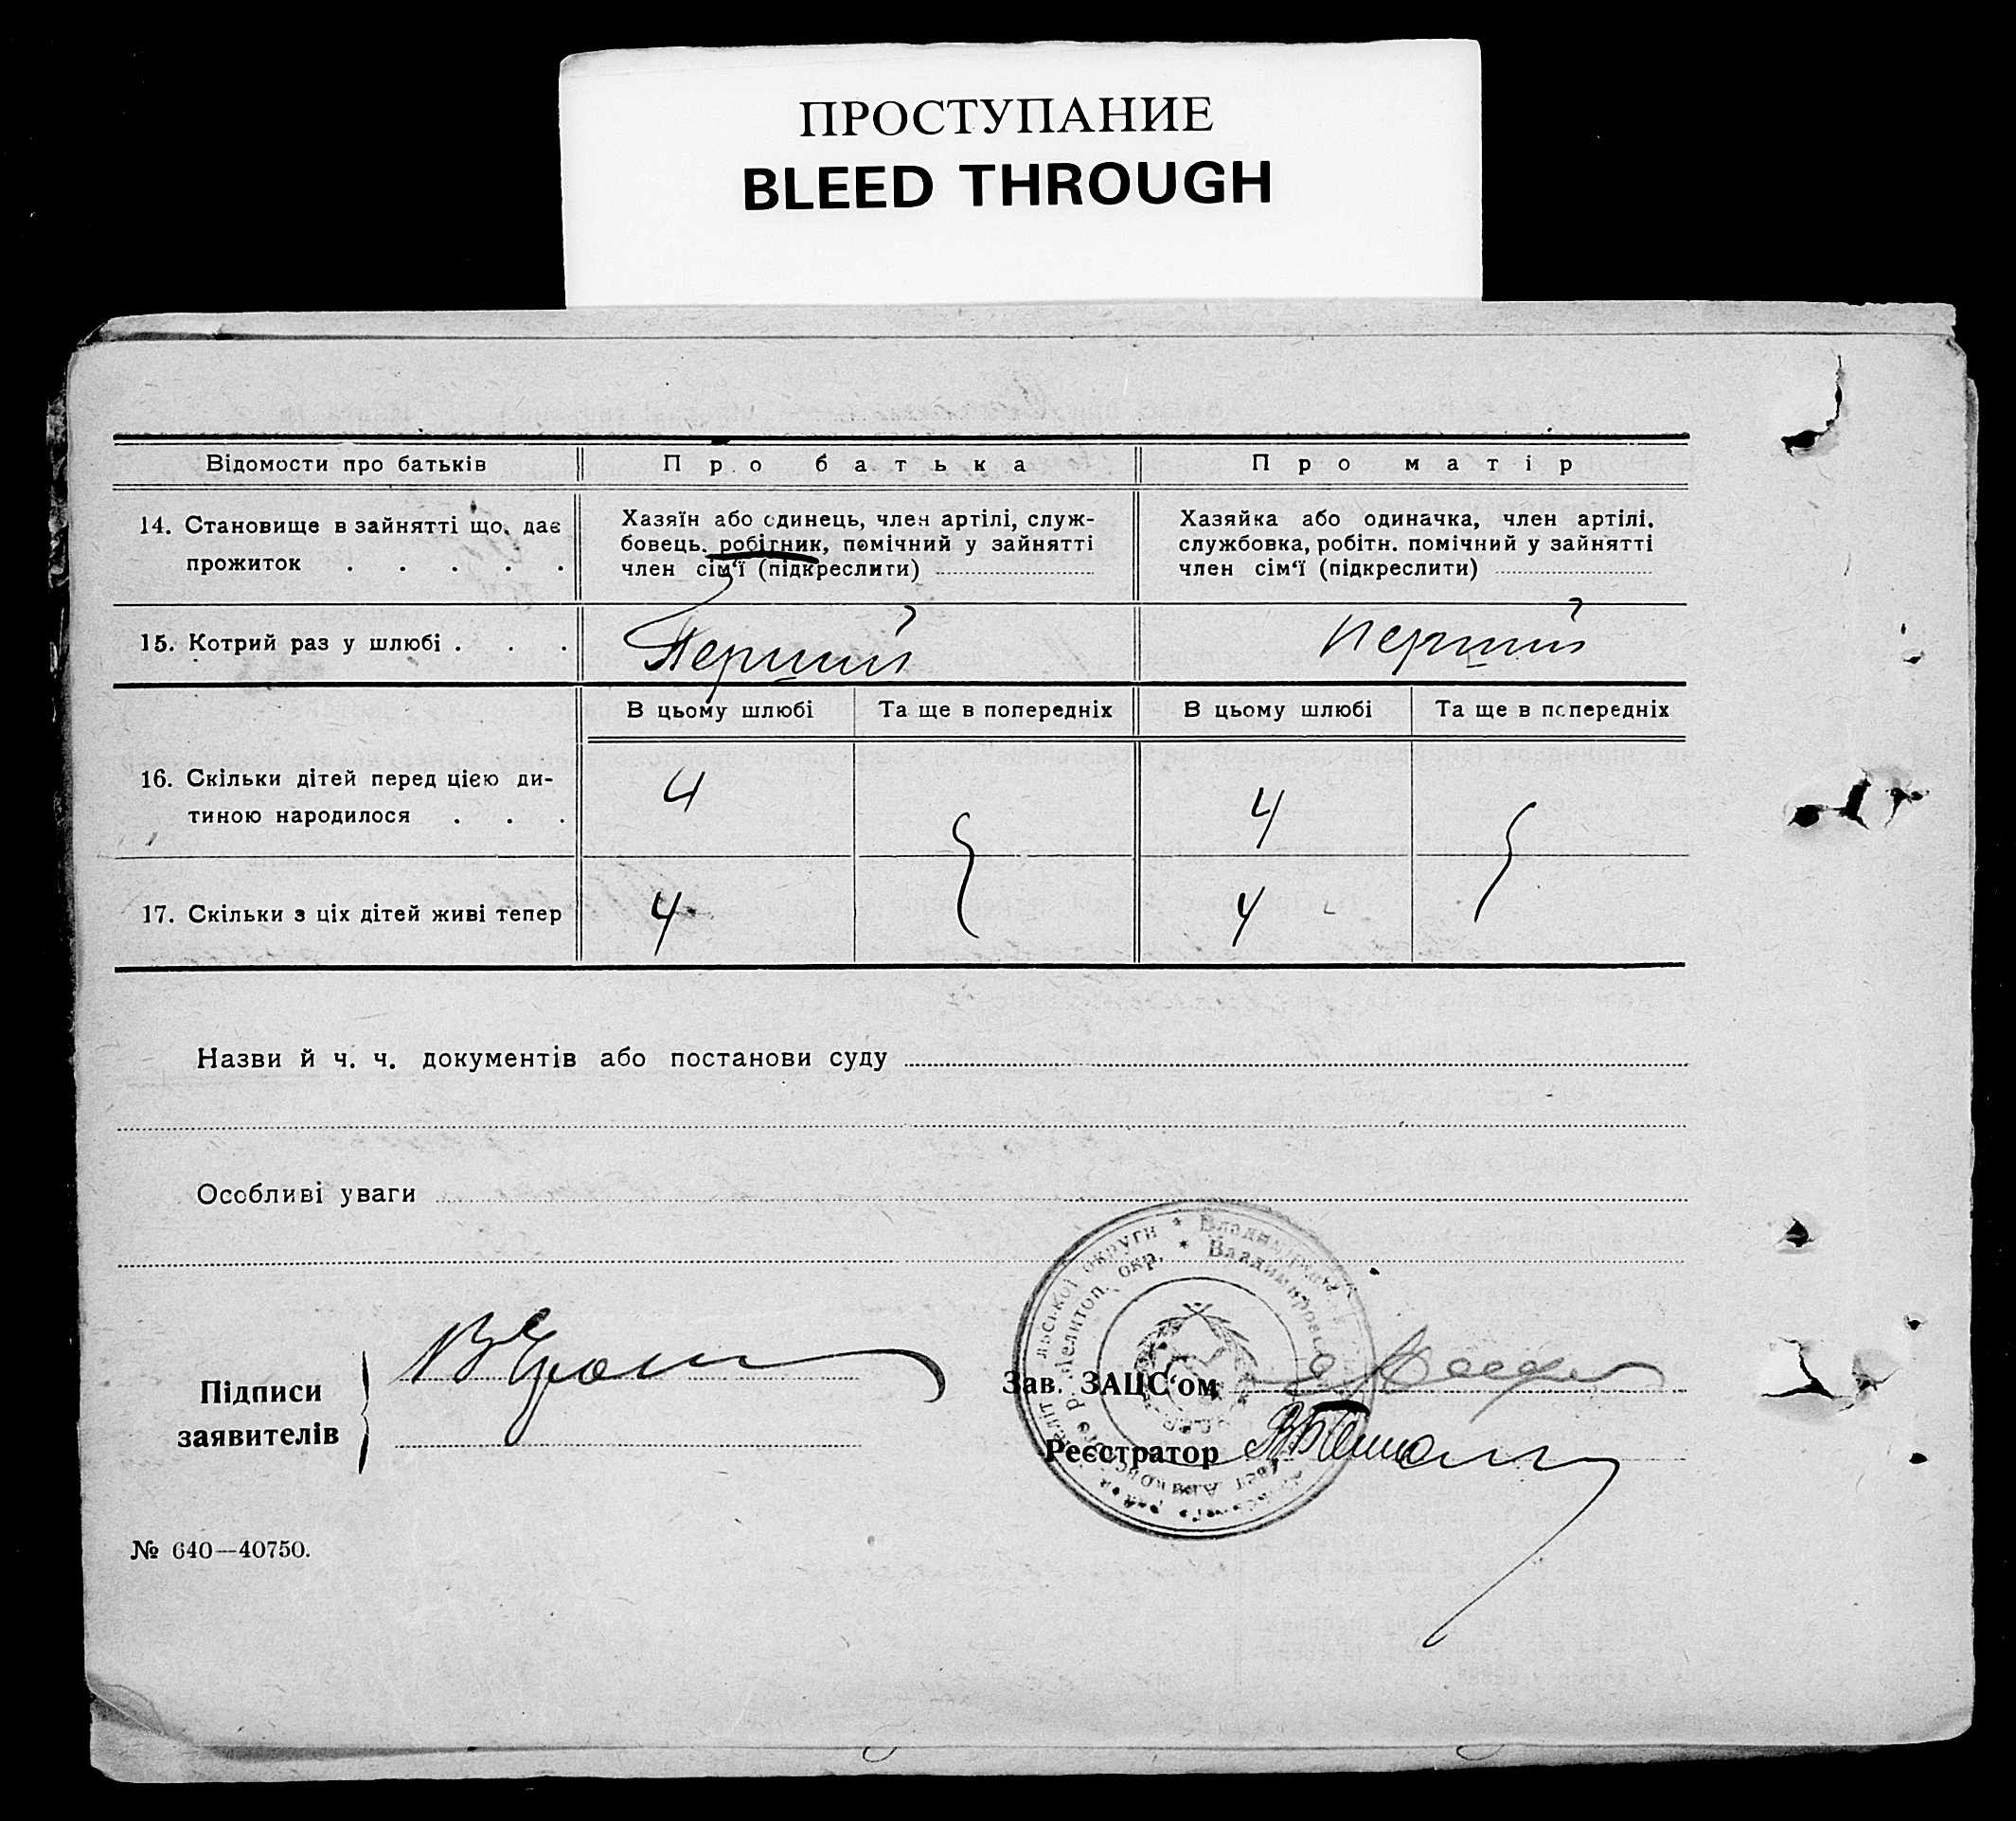 ПРОСТУПАНИЕ
BLEED THROUGH
Відомости про батьків
Про батька
Про матір
14. Становище в зайнятті що дає
прожиток . . . . .
Хазяїн або єдинець, член артілі, служ-
бовець. робітник, помічний у зайнятті
член сім'ї (підкреслити)
Хазяйка або одиначка, член артілі.
службовка, робітн. помічний у зайнятті
член сім'ї (підкреслити)
15. Котрий раз у шлюбі . . .
Перший
Перший
В цьому шлюбі
Та ще в попередніх
В цьому шлюбі
Та ще в попередніх
16. Скільки дітей перед цією ди-
тиною народилося . . .
4
4
17. Скільки з ціх дітей живі тепер
4
4
Назви й ч. ч. документів або постанови суду
Особливі уваги
округи * Владимировс
Мелитоп. окр. * Владимировс
Підписи
заявителів
Зав. ЗАЦС'ом
Реєстратор
№ 640—40750.